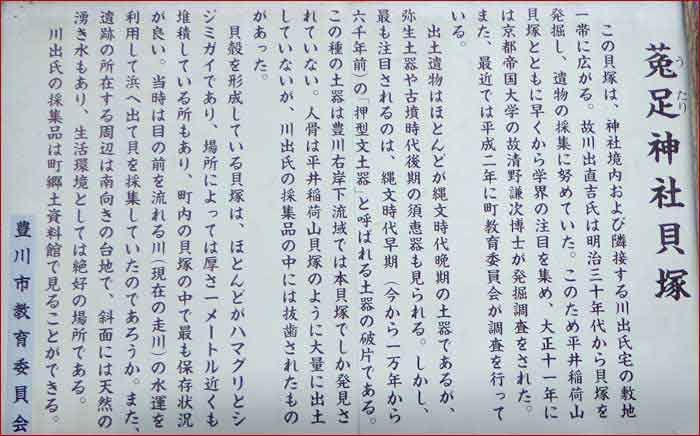 菟足神社貝塚
う たり
この貝塚は、神社境内および隣接する川出氏宅の敷地
一帯に広がる。故川出直吉氏は明治三十年代から貝塚を
発掘し、遺物の採集に努めていた。このため平井稲荷山
貝塚とともに早くから学界の注目を集め、大正十一年に
は京都帝国大学の故清野謙次博士が発掘調査をされた。
また、最近では平成二年に町教育委員会が調査を行って
いる。
出土遺物はほとんどが縄文時代晩期の土器であるが、
弥生土器や古墳時代後期の須恵器も見られる。しかし、
最も注目されるのは、縄文時代早期（今から一万年から
六千年前）の「押型文土器」と呼ばれる土器の破片である。
この種の土器は豊川右岸下流域では本貝塚でしか発見さ
れていない。人骨は平井稲荷山貝塚のように大量に出土
していないが、川出氏の採集品の中には抜歯されたもの
があった。
貝殻を形成している貝塚は、ほとんどがハマグリとシ
ジミガイであり、場所によっては厚さ一メートル近くも
堆積している所もあり、町内の貝塚の中で最も保存状況
が良い。当時は目の前を流れる川（現在の走川）の水運を
利用して浜へ出て貝を採集していたのであろうか。また、
遺跡の所在する周辺は南向きの台地で、斜面には天然の
湧き水もあり、生活環境としては絶好の場所である。
川出氏の採集品は町郷土資料館で見ることができる。
豊川市教育委員会